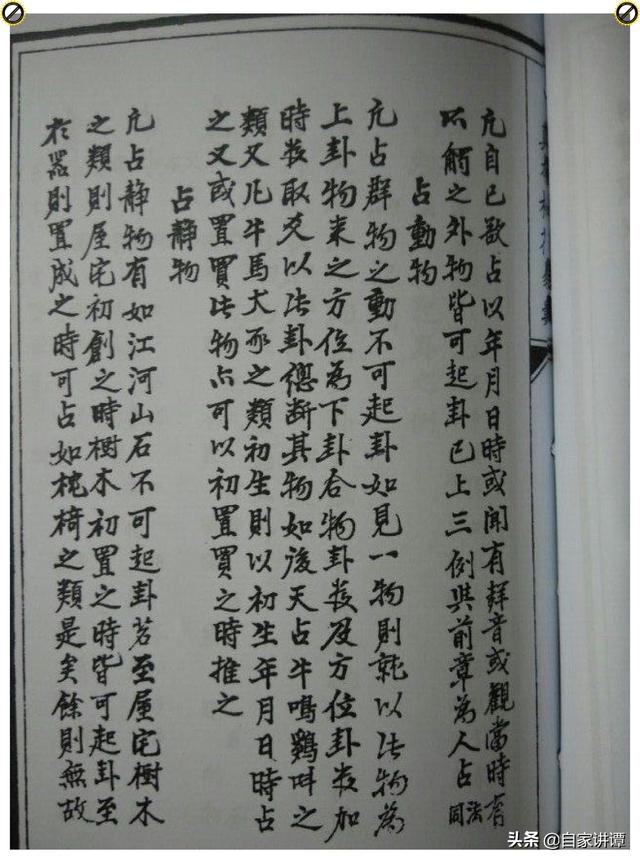 凢自己欲占以年月日時或聞有聲音或觀當時有
所觸之外物皆可起卦已上三例與前章為人占法同
占動物
凢占群物之動不可起卦如見一物則就以此物為
上卦物来之方位為下卦合物卦数及方位卦数加
時数取爻以此卦總断其物如後天占牛鳴鷄叫之
類又凢牛馬犬豕之類初生則以初生年月日時占
之又或置買此物亦可以初置買之時推之
占静物
凢占静物有如江河山石不可起卦若至屋宅樹木
之類則屋宅初創之時樹木初置之時皆可起卦至
於器則置成之時可占如枕椅之類是矣餘則無故
头条 @自家讲谭